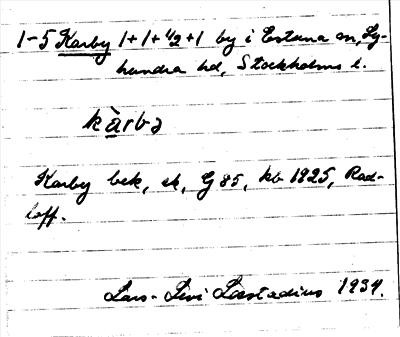 1-5 Karby 1+1+1/2+1 by i Estuna sn, Ly-
hundra hd, Stockholms l.
kàrbə
Karby bek, sk, G 85, kb 1925, Rad-
loff.
Lars-Levi Læstadius 1934.